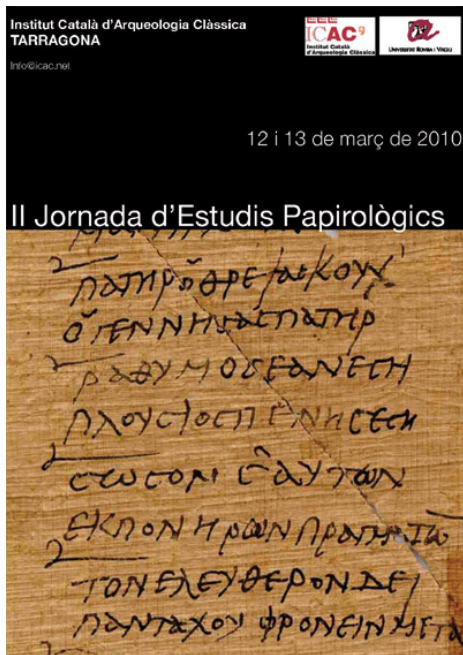 Institut Català d'Arqueologia Clàssica
TARRAGONA
Info@icac.net
ICAC
Institut Català
d'Arqueologia Clàssica
UNIVERSITAT ROVIRA I VIRGILI
12 i 13 de març de 2010
II Jornada d'Estudis Papirològics
ΠΑΤΗΡ Ο ΘΡΕΨΑϹ ΚΟΥΧ
Ο ΓΕΝΝΗϹΑϹ ΠΑΤΗΡ
ΡΑΘΥΜΟϹ ΕΑΝ ΕϹΗ
ΠΛΟΥϹΙΟϹ ΠΕΝΗϹ ΕϹΗ
ϹΕΑΥΤΩΝ
ΕΚ ΠΟΝΗΡΩΝ
ΤΟΝ ΕΛΕΥΘΕΡΟΝ ΔΕΙ
ΠΑΝΤΑΧΟΥ ΦΡΟΝΕΙΝ ΜΕΓΑ